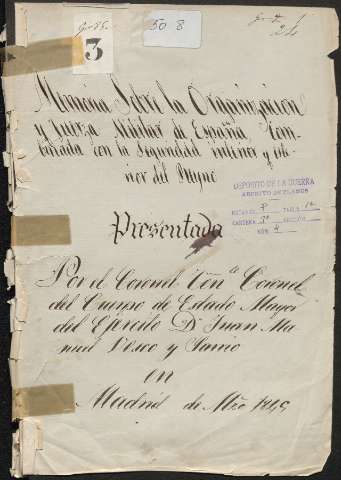 J-85-
3
50 8
Memoria Sobre la Organizacion
y fuerza Militar de España com-
binada con la Seguridad interior y ete-
rior del Reyno
DEPOSITO DE LA GUERRA
ARCHIVO DE PLANOS
Presentada
Por el Coronel Ten.e Coronel
del Cuerpo de Estado Mayor
del Ejército Dn Juan Ma-
nuel
y
en
Madrid de Mzo 1849